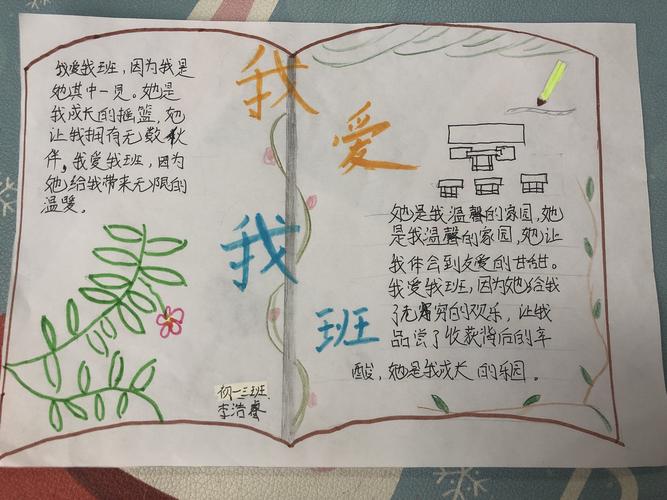 我爱我班
我爱我班，因为我是
她其中一员。她是
我成长的摇篮，她
让我拥有无数伙
伴，我爱我班，因为
她给我带来无限的
温暖。
初一三班
李浩睿
她是我温馨的家园，她
是我温馨的家园，她让
我体会到友爱的甘甜。
我爱我班，因为她给我
了无穷的欢乐，让我
品尝了收获背后的辛
酸，她是我成长的乐园。